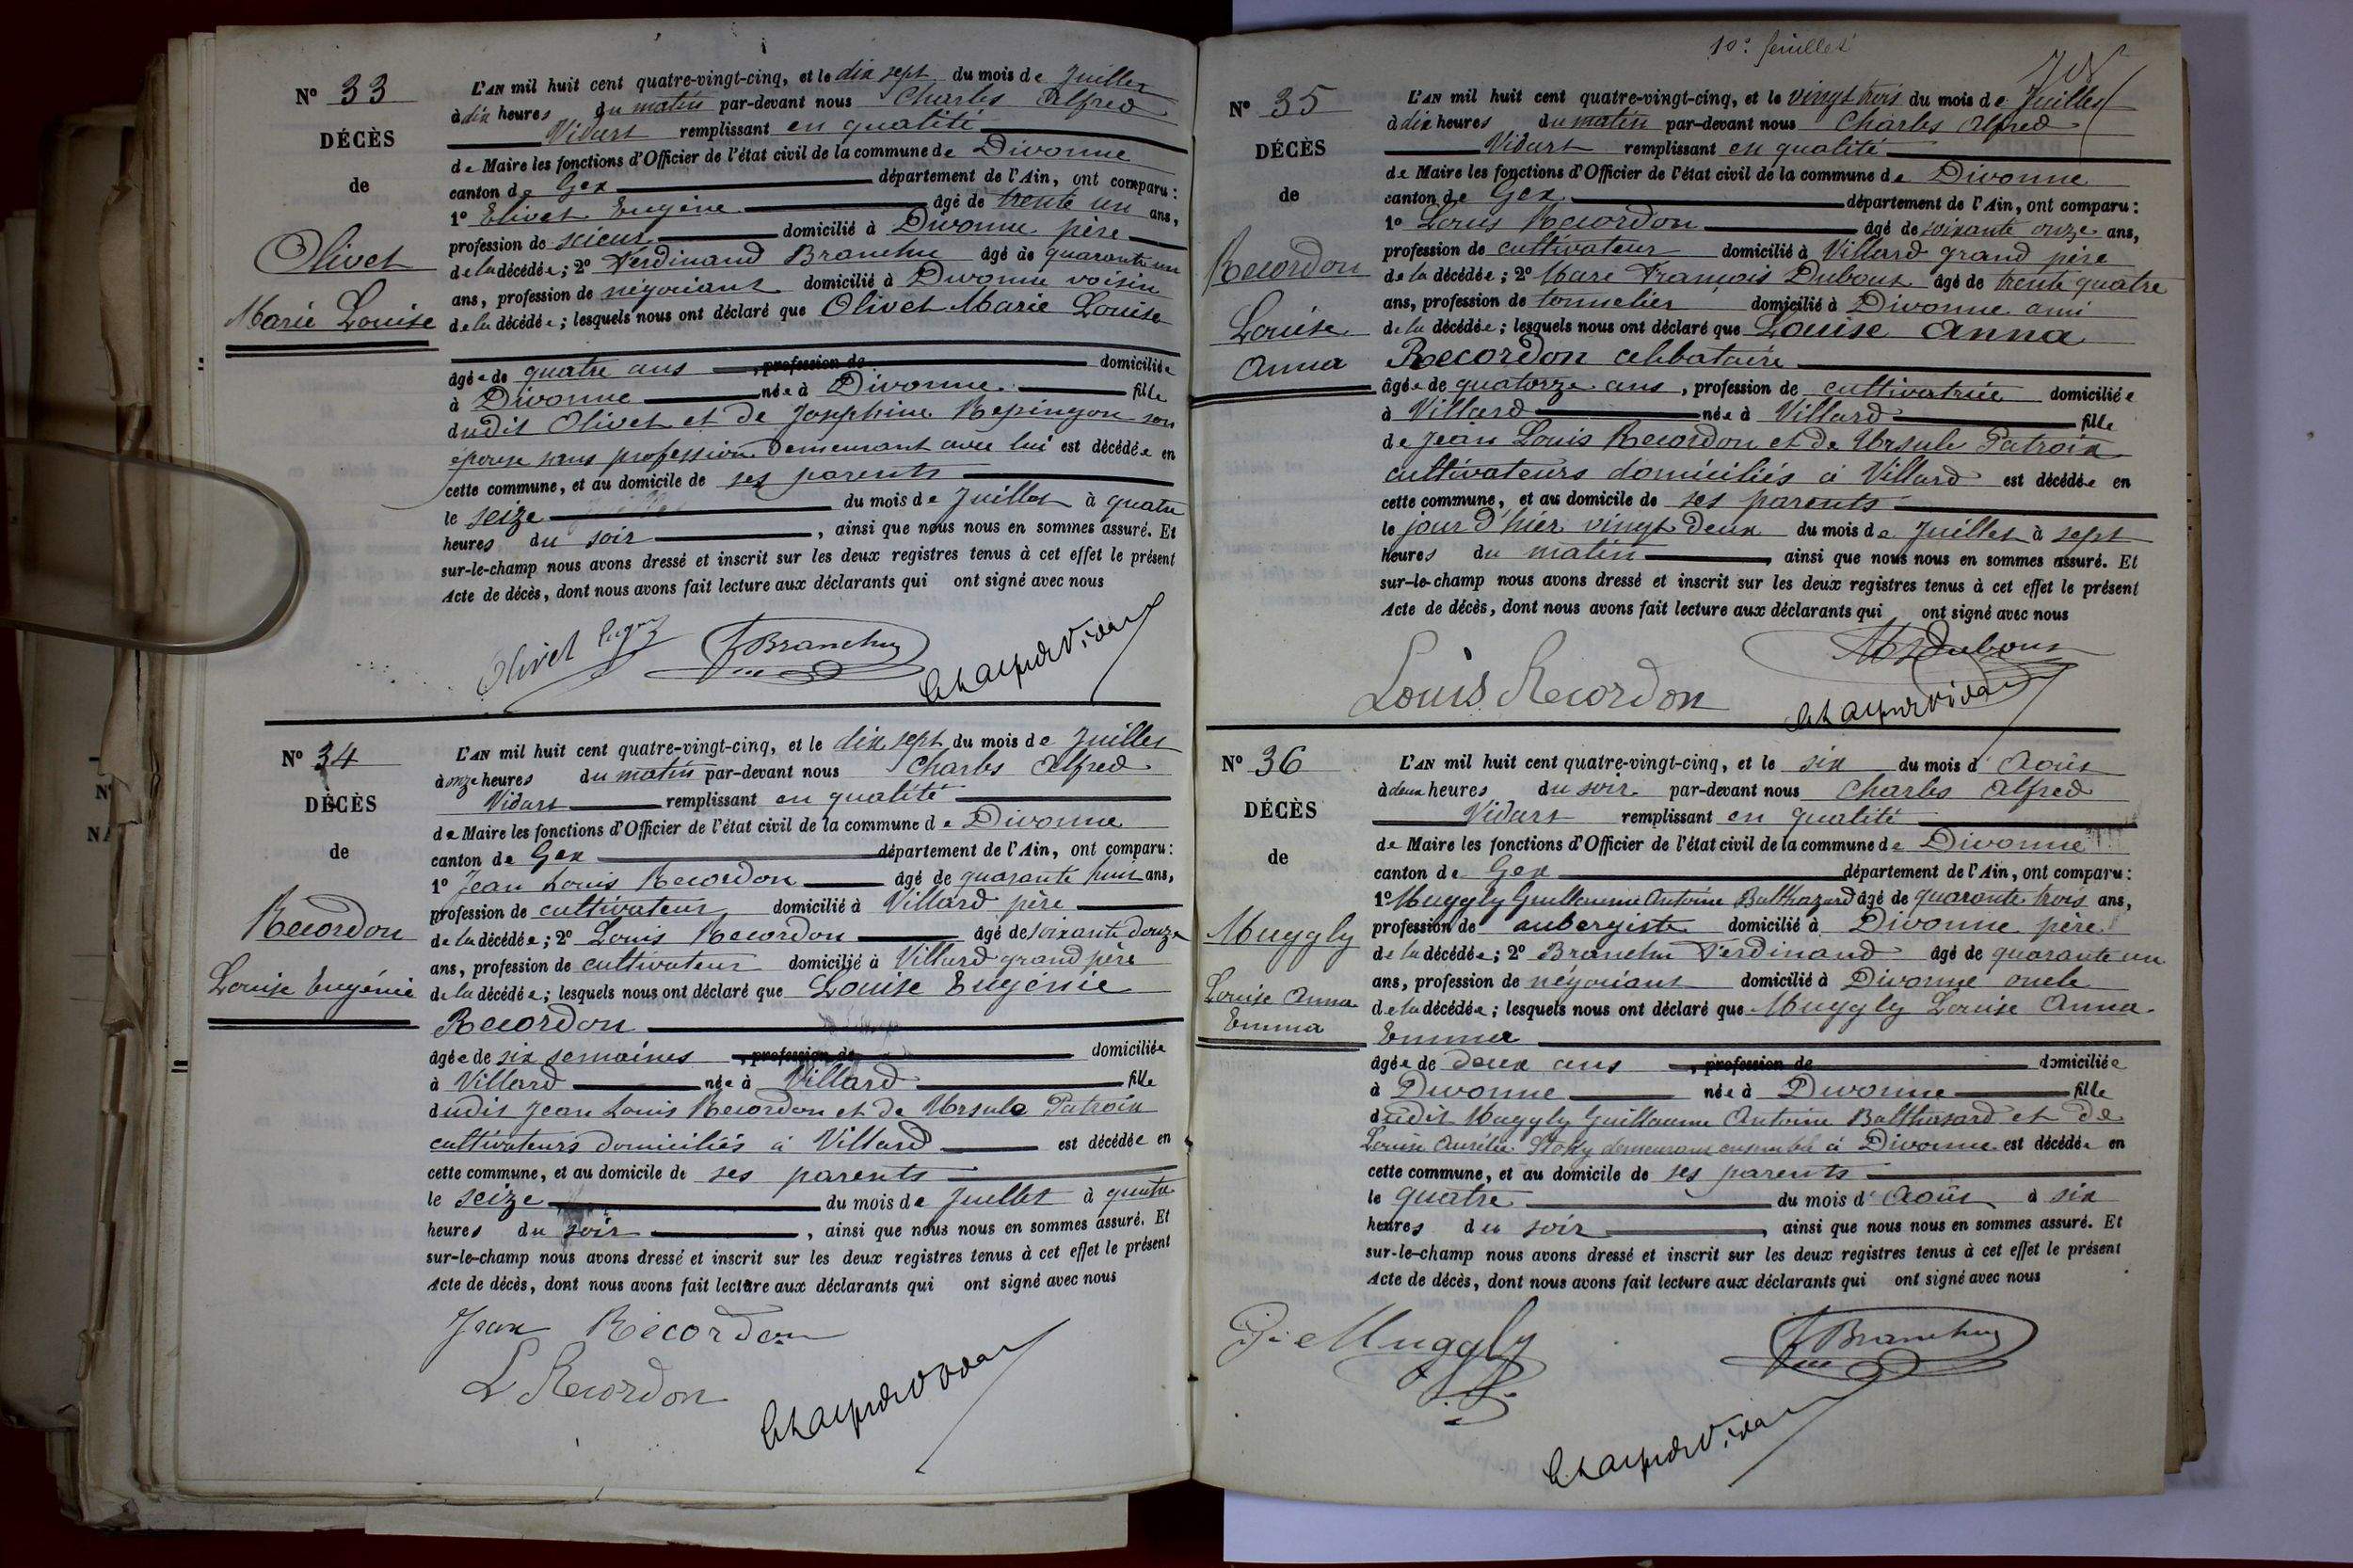 N° 33
DÉCÈS
de
Olivet
Marie Louise
L'AN mil huit cent quatre-vingt-cinq, et le dix sept du mois de Juillet
à dix heures du matin par-devant nous Charles Alfred
Vidart remplissant en qualité
de Maire les fonctions d'Officier de l'état civil de la commune de Divonne
canton de Gex département de l'Ain, ont comparu :
1° Olivet Eugène âgé de trente un ans,
profession de scieur domicilié à Divonne père
de la décédée ; 2° Ferdinand Branchu âgé de quarante un
ans, profession de négociant domicilié à Divonne voisin
de la décédée ; lesquels nous ont déclaré que Olivet Marie Louise
âgée de quatre ans , profession de domiciliée
à Divonne née à Divonne fille
dudit Olivet et de Joséphine Repingon son
épouse sans profession demeurant avec lui est décédée en
cette commune, et au domicile de ses parents
le seize du mois de Juillet à quatre
heures du soir , ainsi que nous nous en sommes assuré. Et
sur-le-champ nous avons dressé et inscrit sur les deux registres tenus à cet effet le présent
Acte de décès, dont nous avons fait lecture aux déclarants qui ont signé avec nous
Olivet Eugène F Branchu
N° 34
DÉCÈS
de
Recordon
Louise Eugénie
L'AN mil huit cent quatre-vingt-cinq, et le dix sept du mois de Juillet
à onze heures du matin par-devant nous Charles Alfred
Vidart remplissant en qualité
de Maire les fonctions d'Officier de l'état civil de la commune de Divonne
canton de Gex département de l'Ain, ont comparu :
1° Jean Louis Recordon âgé de quarante huit ans,
profession de cultivateur domicilié à Villard père
de la décédée ; 2° Louis Recordon âgé de soixante douze
ans, profession de cultivateur domicilié à Villard grand père
de la décédée ; lesquels nous ont déclaré que Louise Eugénie
Recordon
âgée de six semaines , profession de domiciliée
à Villard née à Villard fille
dudit Jean Louis Recordon et de Ursule Patroix
cultivateurs domiciliés à Villard est décédée en
cette commune, et au domicile de ses parents
le seize du mois de Juillet à quatre
heures du soir , ainsi que nous nous en sommes assuré. Et
sur-le-champ nous avons dressé et inscrit sur les deux registres tenus à cet effet le présent
Acte de décès, dont nous avons fait lecture aux déclarants qui ont signé avec nous
Jean Recordon
L Recordon
10e feuillet
N° 35
DÉCÈS
de
Recordon
Louise
Anna
L'AN mil huit cent quatre-vingt-cinq, et le vingt trois du mois de Juillet
à dix heures du matin par-devant nous Charles Alfred
Vidart remplissant en qualité
de Maire les fonctions d'Officier de l'état civil de la commune de Divonne
canton de Gex département de l'Ain, ont comparu :
1° Louis Recordon âgé de soixante onze ans,
profession de cultivateur domicilié à Villard grand père
de la décédée ; 2° Marc François Dubout âgé de trente quatre
ans, profession de tonnelier domicilié à Divonne ami
de la décédée ; lesquels nous ont déclaré que Louise Anna
Recordon célibataire
âgée de quatorze ans , profession de cultivatrice domiciliée
à Villard née à Villard fille
de Jean Louis Recordon et de Ursule Patroix
cultivateurs domiciliés à Villard est décédée en
cette commune, et au domicile de ses parents
le jour d'hier vingt deux du mois de Juillet à sept
heures du matin , ainsi que nous nous en sommes assuré. Et
sur-le-champ nous avons dressé et inscrit sur les deux registres tenus à cet effet le présent
Acte de décès, dont nous avons fait lecture aux déclarants qui ont signé avec nous
Louis Recordon
N° 36
DÉCÈS
de
Muggly
Louise Anna
Emma
L'AN mil huit cent quatre-vingt-cinq, et le six du mois d'Août
à deux heures du soir par-devant nous Charles Alfred
Vidart remplissant en qualité
de Maire les fonctions d'Officier de l'état civil de la commune de Divonne
canton de Gex département de l'Ain, ont comparu :
1° Muggly Guillaume Antoine Balthazard âgé de quarante trois ans,
profession de aubergiste domicilié à Divonne père
de la décédée ; 2° Branchu Ferdinand âgé de quarante un
ans, profession de négociant domicilié à Divonne oncle
de la décédée ; lesquels nous ont déclaré que Muggly Louise Anna
Emma
âgée de deux ans , profession de domiciliée
à Divonne née à Divonne fille
dudit Muggly Guillaume Antoine Balthasard et de
Louise Aurélie demeurant ensemble à Divonne est décédée en
cette commune, et au domicile de ses parents
le quatre du mois d'Août à six
heures du soir , ainsi que nous nous en sommes assuré. Et
sur-le-champ nous avons dressé et inscrit sur les deux registres tenus à cet effet le présent
Acte de décès, dont nous avons fait lecture aux déclarants qui ont signé avec nous
Muggly F Branchu